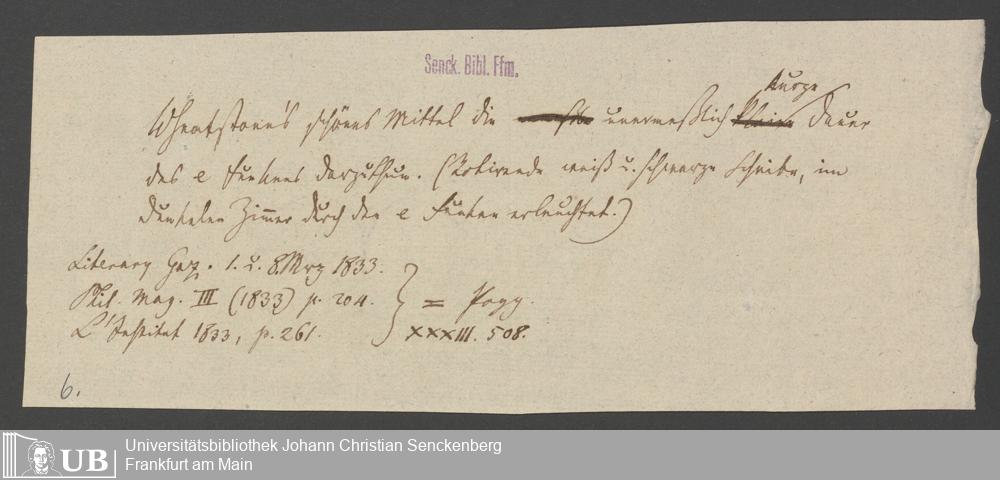 Senck. Bibl. Ffm.
kurze
Wheatstone's schönes Mittel die unermeßlich kleine Dauer
des e Funkens darzuthun. (Rotirende weiß u. schwarze Scheibe, im
dunkelen Zimmer durch den e Funken erleuchtet.)
Literary Gaz. 1. u. 8. Mrz 1833.
Phil. Mag. III (1833) p. 204. = Pogg.
L'Institut 1833, p. 261. XXXIII. 508.
6.
UB
Universitätsbibliothek Johann Christian Senckenberg
Frankfurt am Main